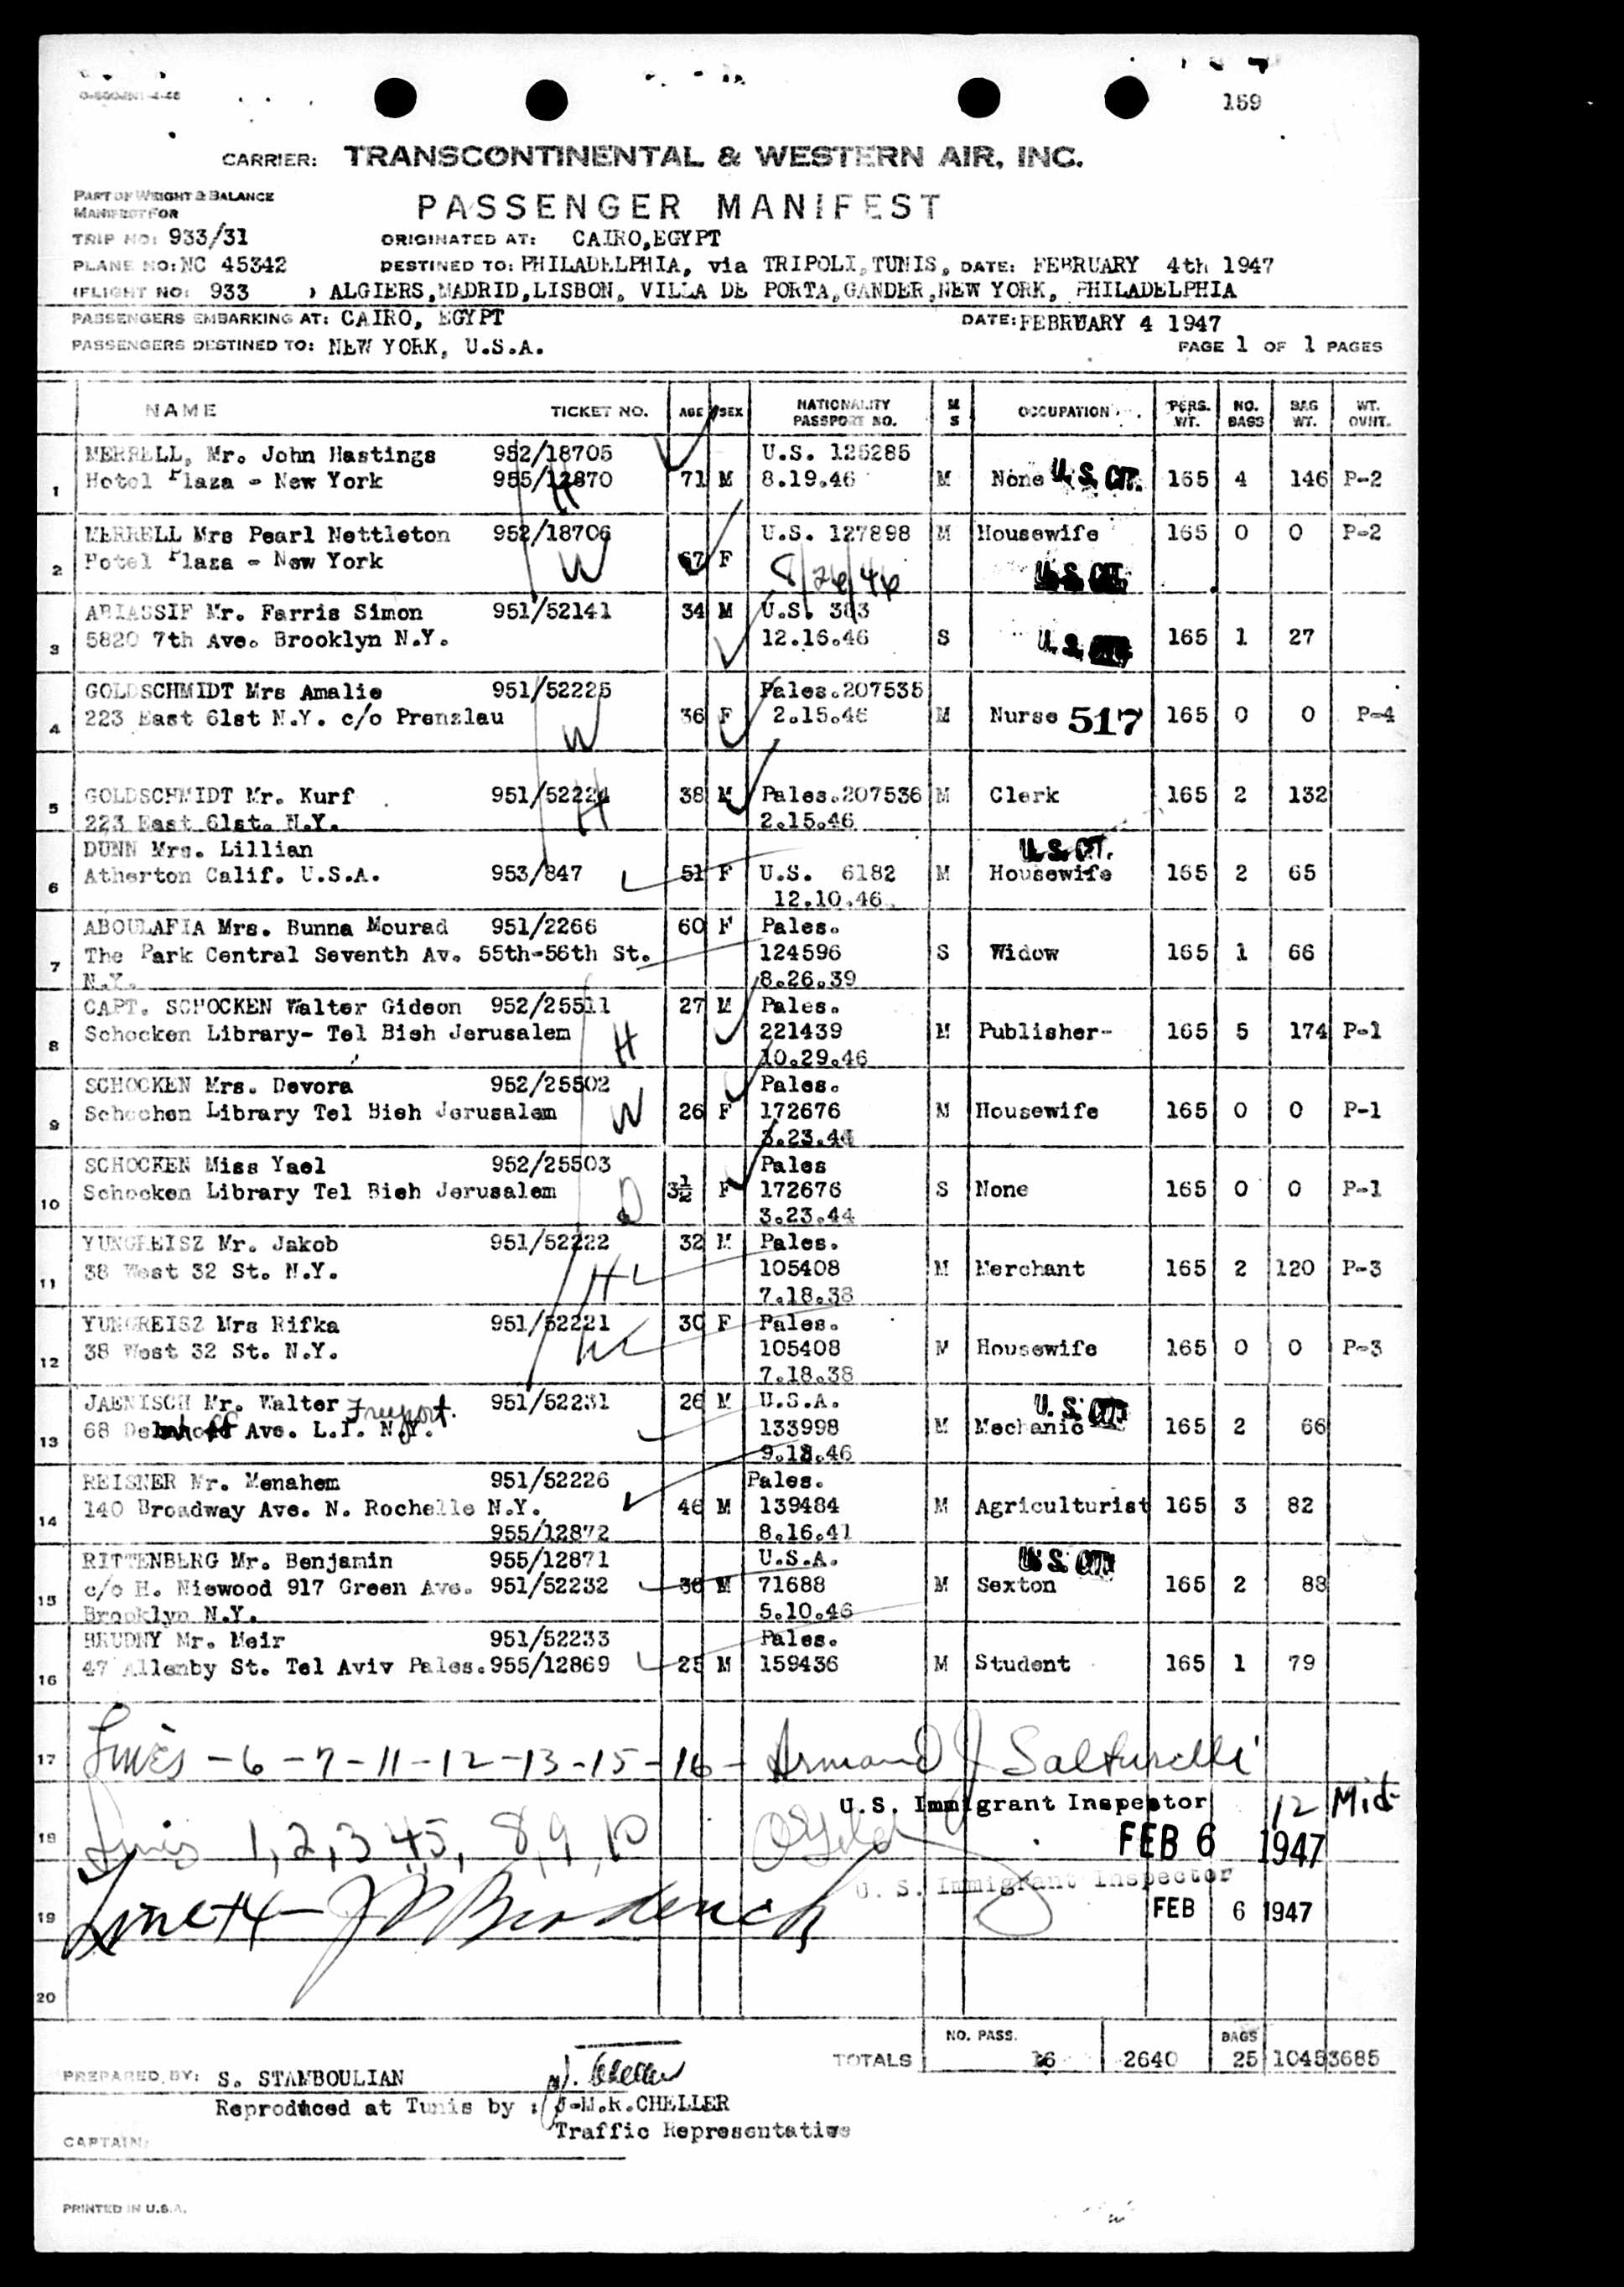 159
CARRIER: TRANSCONTINENTAL & WESTERN AIR, INC.
PART OF WEIGHT & BALANCE
MANIFEST FOR
PASSENGER MANIFEST
TRIP NO: 933/31 ORIGINATED AT: CAIRO,EGYPT
PLANE NO: NC 45342 DESTINED TO: PHILADELPHIA, via TRIPOLI,TUNIS, DATE: FEBRUARY 4th 1947
(FLIGHT NO: 933 ) ALGIERS,MADRID,LISBON, VILLA DE PORTA,GANDER,NEW YORK, PHILADELPHIA
PASSENGERS EMBARKING AT: CAIRO, EGYPT DATE: FEBRUARY 4 1947
PASSENGERS DESTINED TO: NEW YORK, U.S.A. PAGE 1 OF 1 PAGES
NAME TICKET NO. AGE SEX NATIONALITY PASSPORT NO. M S OCCUPATION PERS. WT. NO. BAGS BAG WT. WT. OVHT.
MERRELL, Mr. John Hastings 952/18705 U.S. 125285
1 Hotel Plaza - New York 955/12870 H 71 M 8.19.46 M None U.S. CIT. 165 4 146 P-2
MERRELL Mrs Pearl Nettleton 952/18706 U.S. 127898 M Housewife 165 0 0 P-2
2 Hotel Plaza - New York W 67 F 8/26/46 U.S. CIT.
ABIASSIF Mr. Farris Simon 951/52141 34 M U.S. 383
3 5820 7th Ave. Brooklyn N.Y. 12.16.46 S U.S. CIT. 165 1 27
GOLDSCHMIDT Mrs Amalie 951/52225 Pales.207535
4 223 East 61st N.Y. c/o Prenzlau W 36 F 2.15.46 M Nurse 517 165 0 0 P-4
5 GOLDSCHMIDT Mr. Kurf 951/52224 H 38 M Pales.207536 M Clerk 165 2 132
223 East 61st. N.Y. 2.15.46
DUNN Mrs. Lillian U.S. CIT.
6 Atherton Calif. U.S.A. 953/847 51 F U.S. 6182 M Housewife 165 2 65
12.10.46
ABOULAFIA Mrs. Bunna Mourad 951/2266 60 F Pales.
7 The Park Central Seventh Av. 55th-56th St. 124596 S Widow 165 1 66
N.Y. 8.26.39
CAPT. SCHOCKEN Walter Gideon 952/25511 27 M Pales.
8 Schocken Library- Tel Bieh Jerusalem H 221439 M Publisher- 165 5 174 P-1
10.29.46
SCHOCKEN Mrs. Devora 952/25502 Pales.
9 Schochen Library Tel Bieh Jerusalem W 26 F 172676 M Housewife 165 0 0 P-1
3.23.44
SCHOCKEN Miss Yael 952/25503 Pales
10 Schocken Library Tel Bieh Jerusalem D 3½ F 172676 S None 165 0 0 P-1
3.23.44
YUNGREISZ Mr. Jakob 951/52222 32 M Pales.
11 38 West 32 St. N.Y. H 105408 M Merchant 165 2 120 P-3
7.18.38
YUNGREISZ Mrs Rifka 951/52221 30 F Pales.
12 38 West 32 St. N.Y. W 105408 M Housewife 165 0 0 P-3
7.18.38
JAENISCH Mr. Walter Freeport. 951/52231 26 M U.S.A. U.S. CIT.
13 68 Ave. L.I. N.Y. 133998 M Mechanic 165 2 66
9.18.46
REISNER Mr. Menahem 951/52226 Pales.
14 140 Broadway Ave. N. Rochelle N.Y. 46 M 139484 M Agriculturist 165 3 82
955/12872 8.16.41
RITTENBERG Mr. Benjamin 955/12871 U.S.A. U.S. CIT.
15 c/o H. Niewood 917 Green Ave. 951/52232 36 M 71688 M Sexton 165 2 88
Brooklyn N.Y. 5.10.46
BRUDNY Mr. Meir 951/52233 Pales.
16 47 Allenby St. Tel Aviv Pales. 955/12869 25 M 159436 M Student 165 1 79
17 Lines - 6 - 7 - 11 - 12 - 13 - 15 - 16 - Armand J Salturelli
U.S. Immigrant Inspector 12 Mid-
18 Lines 1, 2, 3, 4, 5, 8, 9, 10 FEB 6 1947
U. S. Immigrant Inspector
19 Line 14 FEB 6 1947
20
NO. PASS. BAGS
TOTALS 16 2640 25 1045 3685
PREPARED BY: S. STAMBOULIAN J. Cheller
Reproduced at Tunis by : J-M.R.CHELLER
Traffic Representative
CAPTAIN:
PRINTED IN U.S.A.